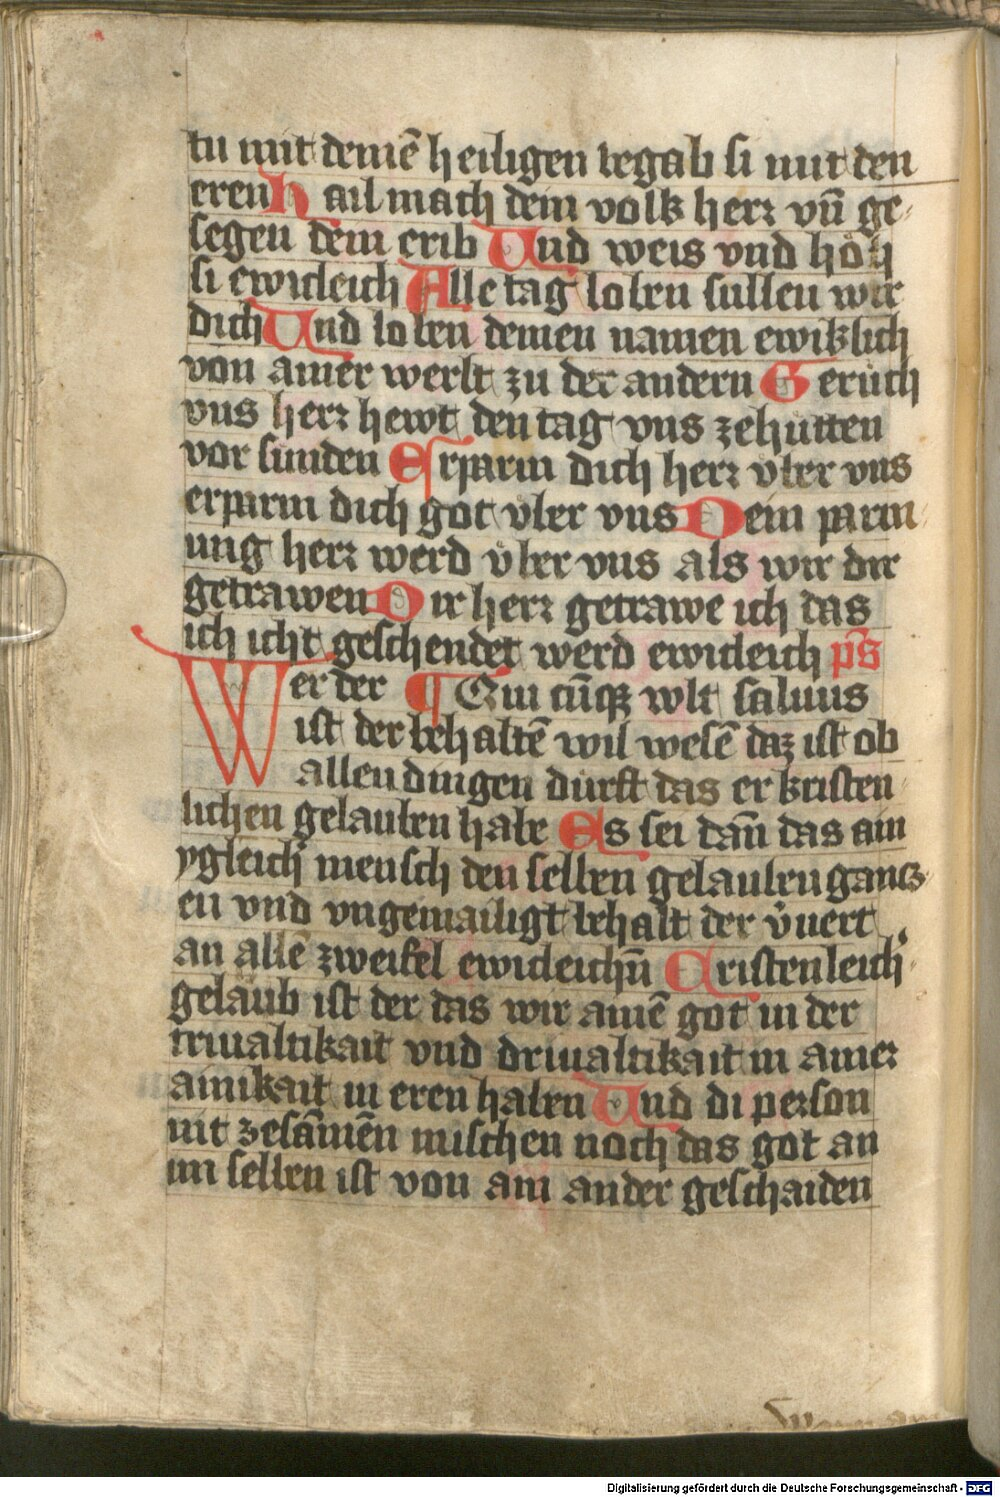 tu mit deinē heiligen begab si mit den
eren Hail mach dein volk herr vn̄ ge-
segen dein erib Und weis vnd hoͤh
si ewicleich Alle tag loben sullen wir
dich Und loben deinen namen ewiklich
von ainer werlt zu der andern Geruͤch
vns herr hewt den tag vns zehuͤtten
vor sunden Erparm dich herr vͤber vns
erparm dich got vͤber vns Dein parm-
ung herr werd vͤber vns als wir dir
getrawen Dir herr getrawe ich das
ich icht geschendet werd ewicleich ps̄
Wer der ¶ Quicūqꝫ wlt saluus
ist der behaltē wil wesē daz ist ob
allen dingen durft das er kristen-
lichen gelauben habe Es sei dan̄ das ain
ygleich mensch den selben gelauben gancz-
en vnd vngemailigt behalt der vͦuert
an allē zweifel ewicleichn̄ Cristenleich-
gelaub ist der das wir ainē got in der
triualtikait vnd driualtikait in ainer
ainikait in eren haben Und di person
nit zesāmen mischen noch das got an
im selben ist von ain ander geschaiden
Digitalisierung gefördert durch die Deutsche Forschungsgemeinschaft - DFG